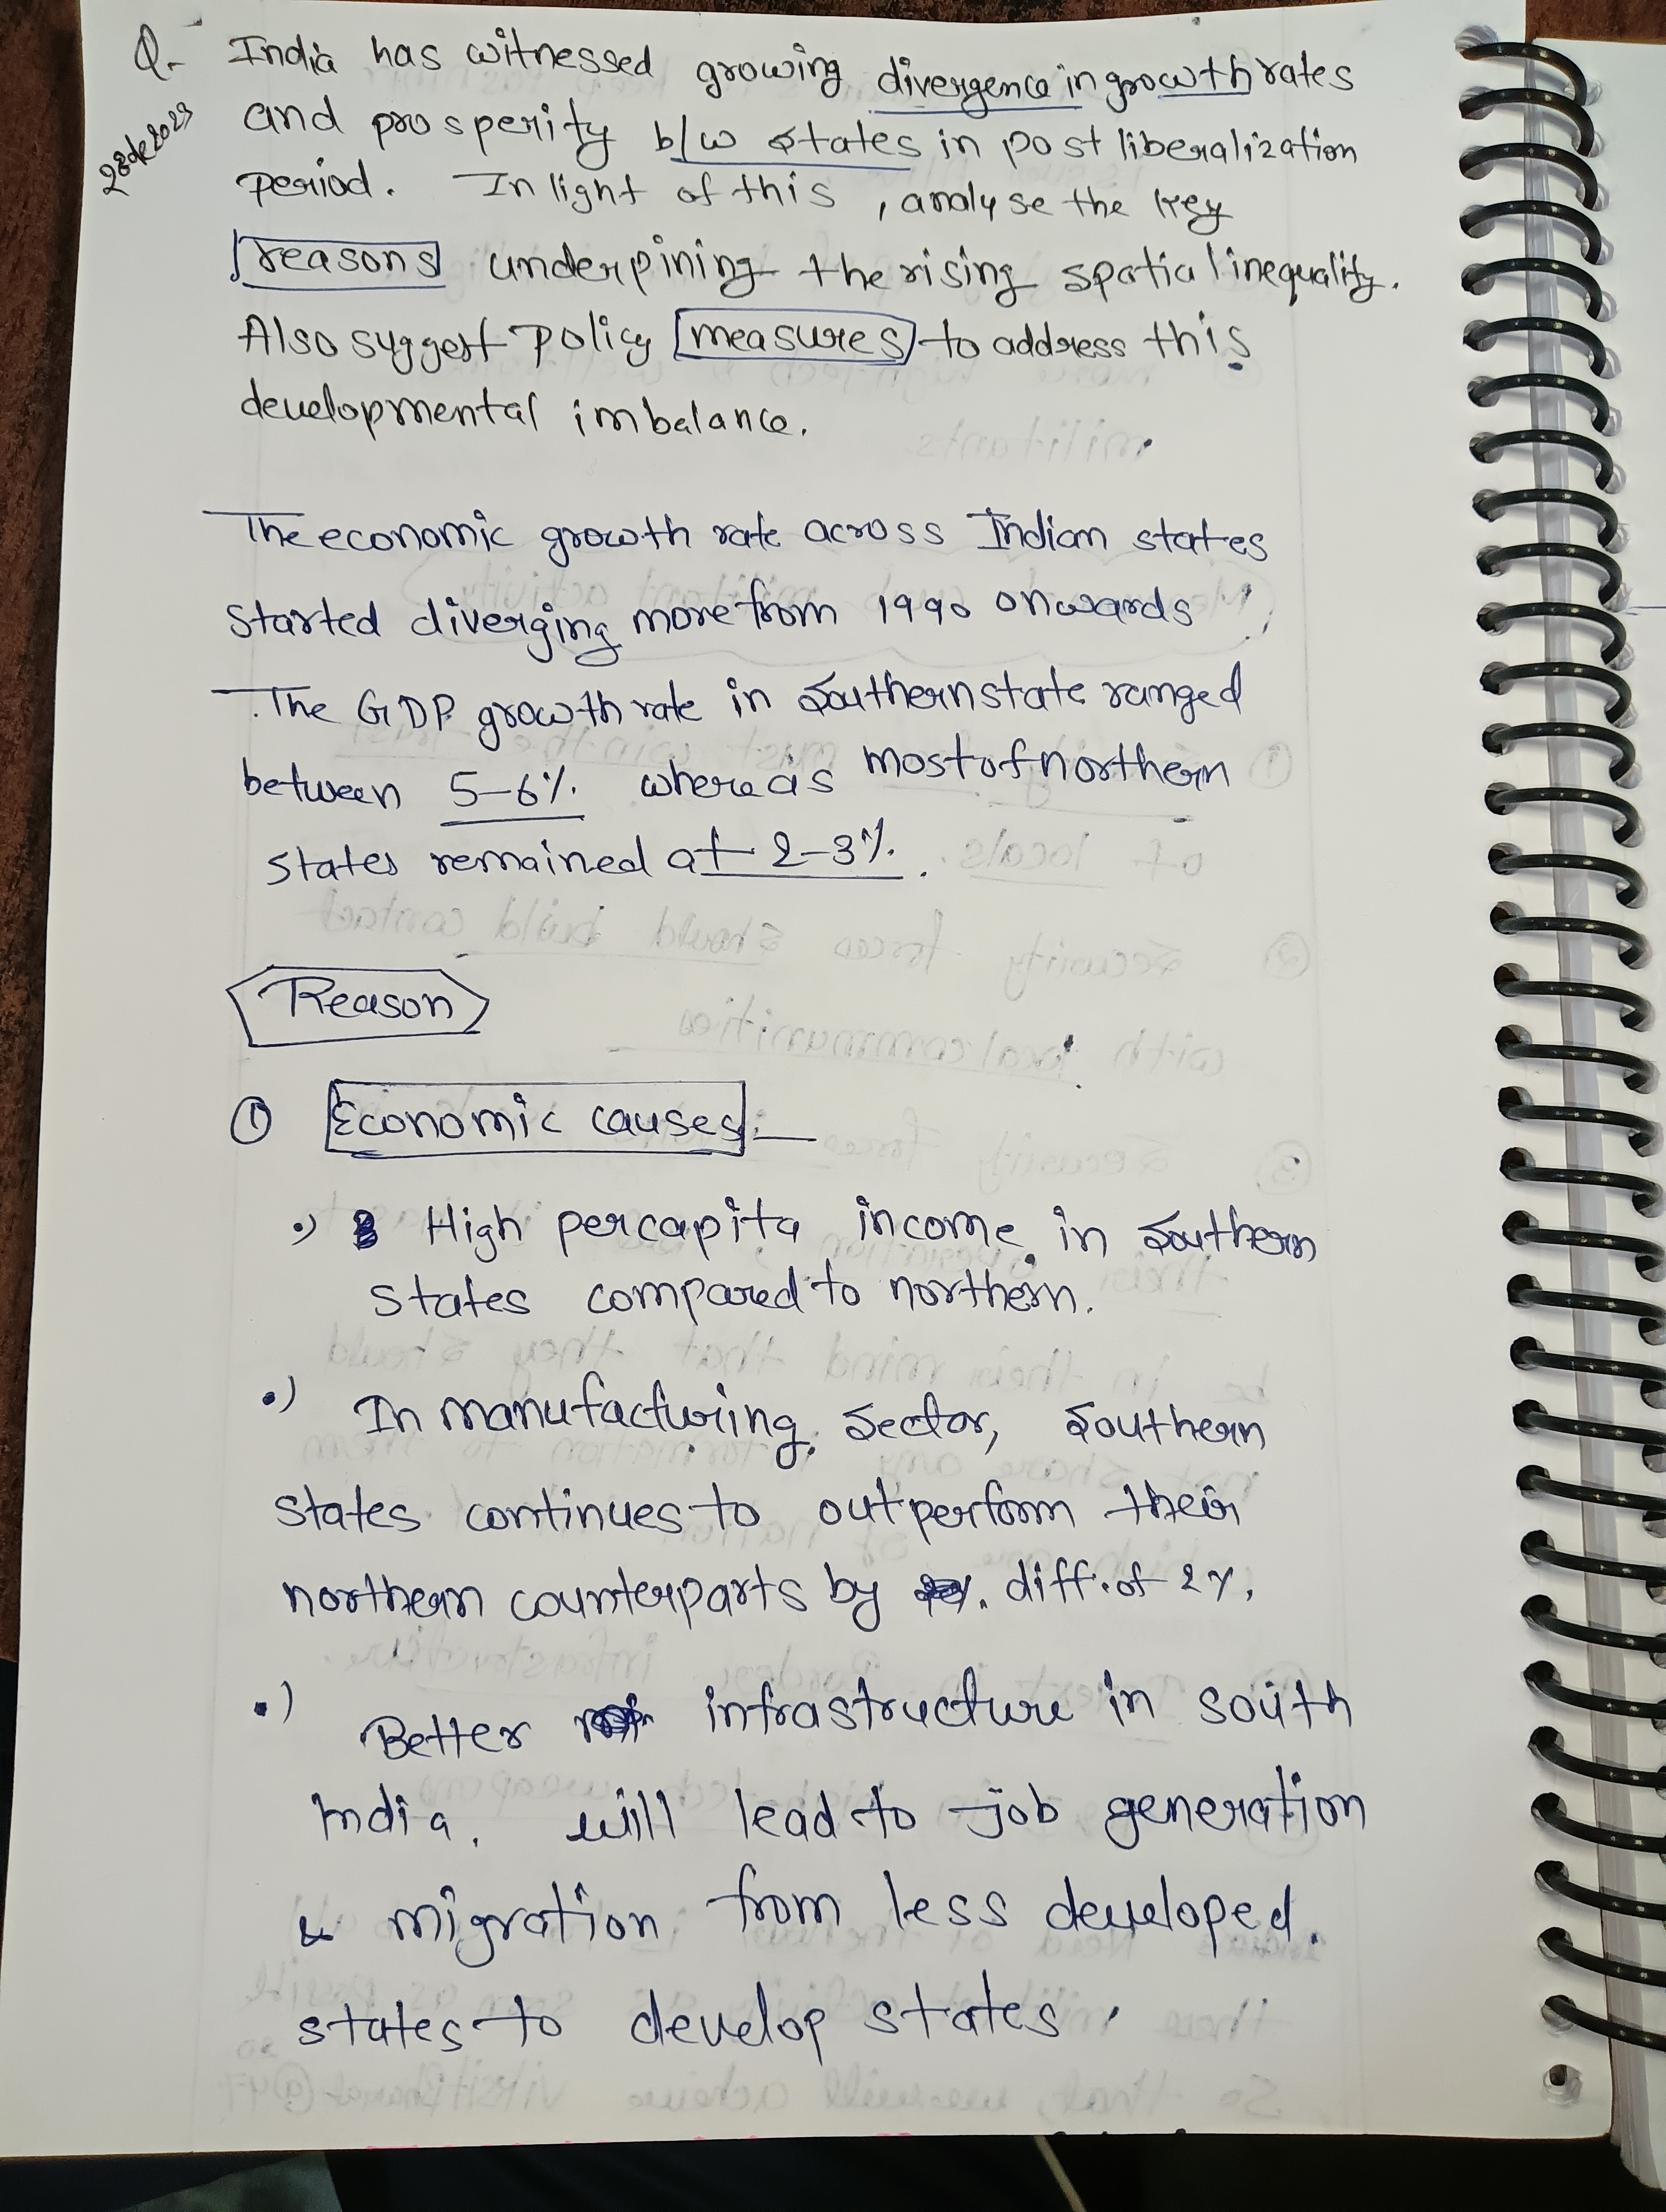 Q. India has witnessed growing divergence in growth rates
28 dec 2023
and prosperity b/w states in post liberalization
period. In light of this, analyse the key
reasons underpining the rising spatial inequality.
Also suggest policy measures to address this
developmental imbalance.
The economic growth rate across Indian states
started diverging more from 1990 onwards
The GDP growth rate in southern state ranged
between 5-6% whereas most of northern
states remained at 2-3%.
Reason
① Economic causes:—
•) High percapita income in southern
states compared to northern.
•) In manufacturing sector, southern
states continues to outperform their
northern counterparts by diff. of 2%.
•) Better infrastructure in south
India. will lead to job generation
& migration from less developed.
states to develop states.